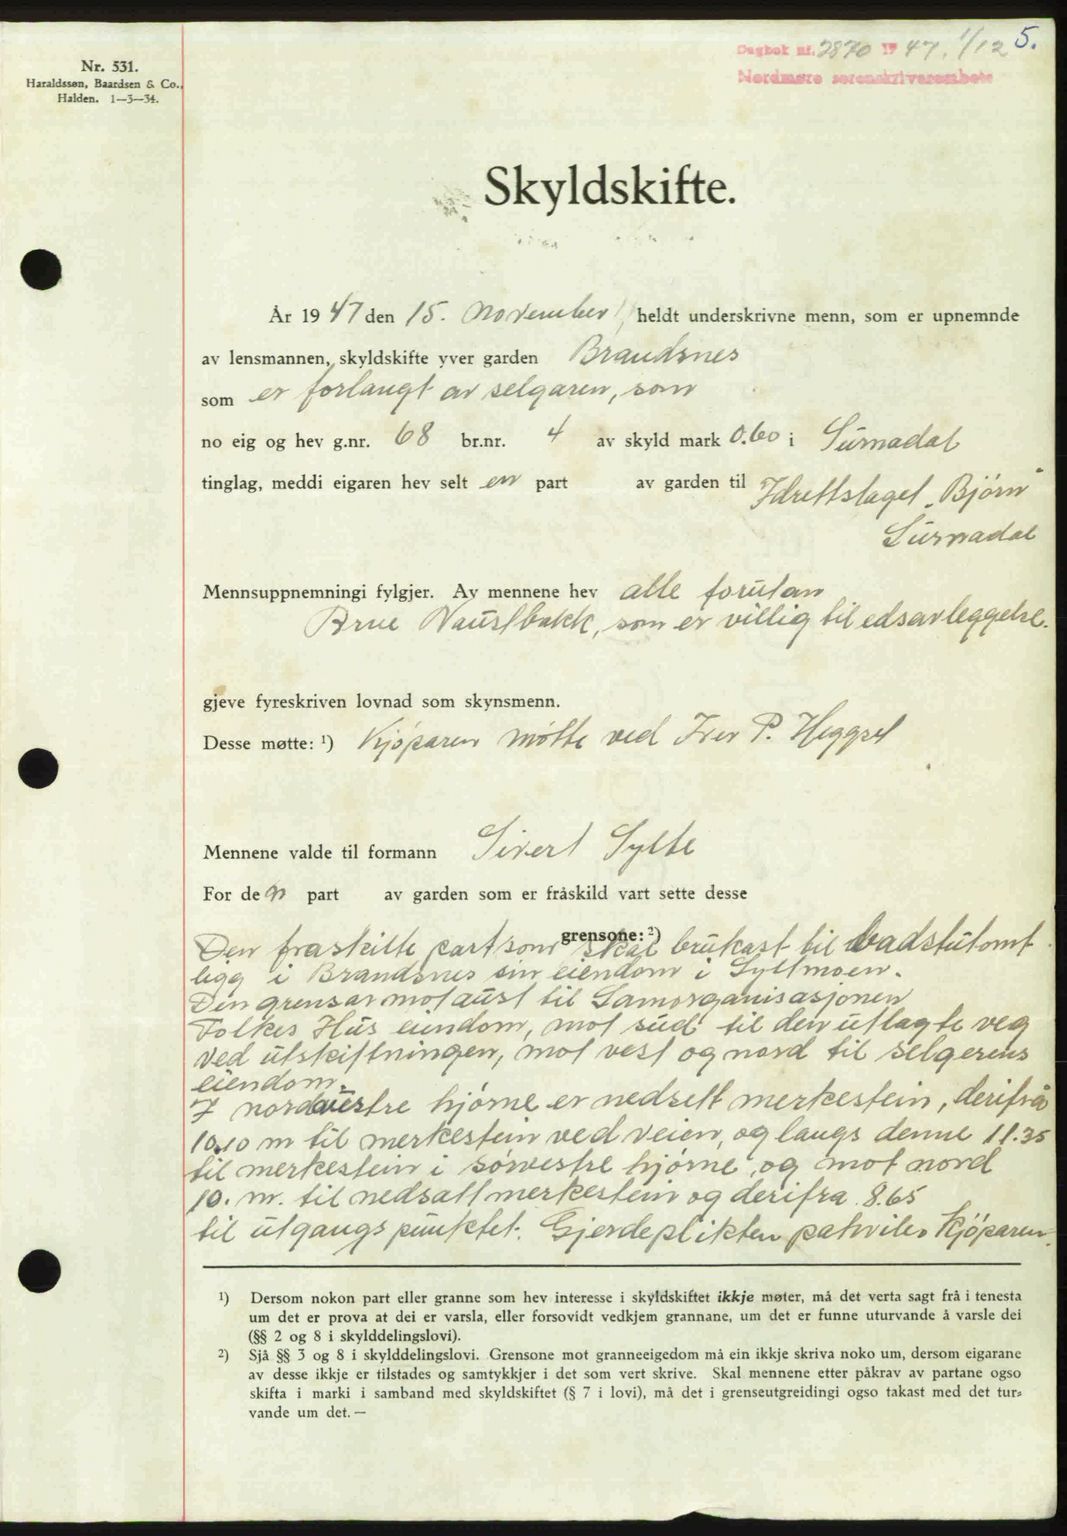 Nr. 531.
Haraldssøn, Baardsen & Co.,
Halden. 1—3—34.
Dagbok nr. 2870 1947. 1/12 5.
Nordmøre sorenskrivarembete
Skyldskifte.
År 1947 den 15. November heldt underskrivne menn, som er upnemnde
av lensmannen, skyldskifte yver garden Brandsnes
som er forlangt av selgaren, som
no eig og hev g.nr. 68 br.nr. 4 av skyld mark 0.60 i Surnadal
tinglag, meddi eigaren hev selt en part av garden til Idrettslaget „Bjørn"
Surnadal
Mennsuppnemningi fylgjer. Av mennene hev alle forutan
Brue Naustbakk, som er villig til edsavleggelse.
gjeve fyreskriven lovnad som skynsmenn.
Desse møtte: ¹) Kjøparen møtte ved Iver P. Heggset
Mennene valde til formann Sivert Sylte
For den part av garden som er fråskild vart sette desse
grensone: ²)
Den fraskilte part som skal brukast til badstutomt
ligg i Brandsnes sin eiendom i Syltmoen.
Den grensar mot aust til Samorganisasjonen
Folkes Hus eiendom, mot sud til den utlagte veg
ved utskiftningen, mot vest og nord til selgerens
eiendom.
I nordvestre hjørne er nedsett merkestein, derifrå
10.10 m til merkestein ved veien, og langs denne 11.35
til merkestein i sørvestre hjørne, og mot nord
10. m. til nedsatt merkestein og derifra 8.65
til utgangspunktet. Gjerdeplikten påhviler Kjøparen.
¹) Dersom nokon part eller granne som hev interesse i skyldskiftet ikkje møter, må det verta sagt frå i tenesta
um det er prova at dei er varsla, eller forsovidt vedkjem grannane, um det er funne uturvande å varsle dei
(§§ 2 og 8 i skylddelingslovi).
²) Sjå §§ 3 og 8 i skylddelingslovi. Grensone mot granneeigedom må ein ikkje skriva noko um, dersom eigarane
av desse ikkje er tilstades og samtykkjer i det som vert skrive. Skal mennene etter påkrav av partane ogso
skifta i marki i samband med skyldskiftet (§ 7 i lovi), må det i grenseutgreidingi ogso takast med det tur-
vande um det. —